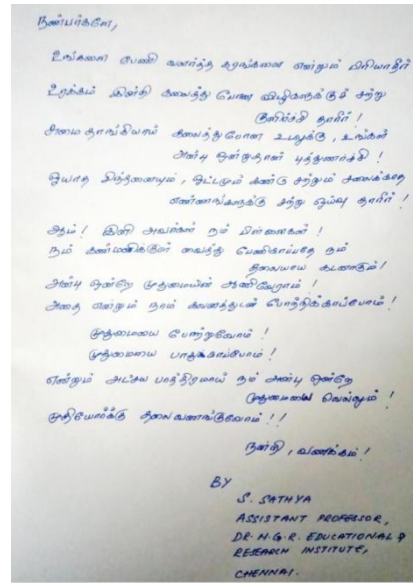 நண்பர்களே,
உங்களை பேணி வளர்த்த கரங்களை என்றும் பிரியாதீர்
உறக்கம் இன்றி களைத்து போன விழிகளுக்குச் சற்று
குளிர்ச்சி தாரீர் !
சுமை தாங்கியாய் களைத்துபோன உடலுக்கு, உங்கள்
அன்பு ஒன்றுதான் புத்துணர்ச்சி !
ஓயாத சிந்தனையும், ஓட்டமும் கண்டு சற்றும் சளைக்காத
எண்ணங்களுக்கு சற்று ஓய்வு தாரீர் !
ஆம் ! இனி அவர்கள் நம் பிள்ளைகள் !
நம் கண்மணிக்குள் வைத்து பேணிகாப்பதே நம்
தலையாய கடனாகும் !
அன்பு ஒன்றே முதுமையின் ஆணிவேராம் !
அதை என்றும் நாம் கவனத்துடன் போற்றிக்காப்போம் !
முதுமையை போற்றுவோம் !
முதுமையை பாதுகாப்போம் !
என்றும் அட்சய பாத்திரமாய் நம் அன்பு ஒன்றே
முதுமையை வெல்லும் !
முதியோர்க்கு தலைவணங்குவோம் !!
நன்றி, வணக்கம் !
BY
S. SATHYA
ASSISTANT PROFESSOR,
DR. M.G.R. EDUCATIONAL &
RESEARCH INSTITUTE,
CHENNAI.